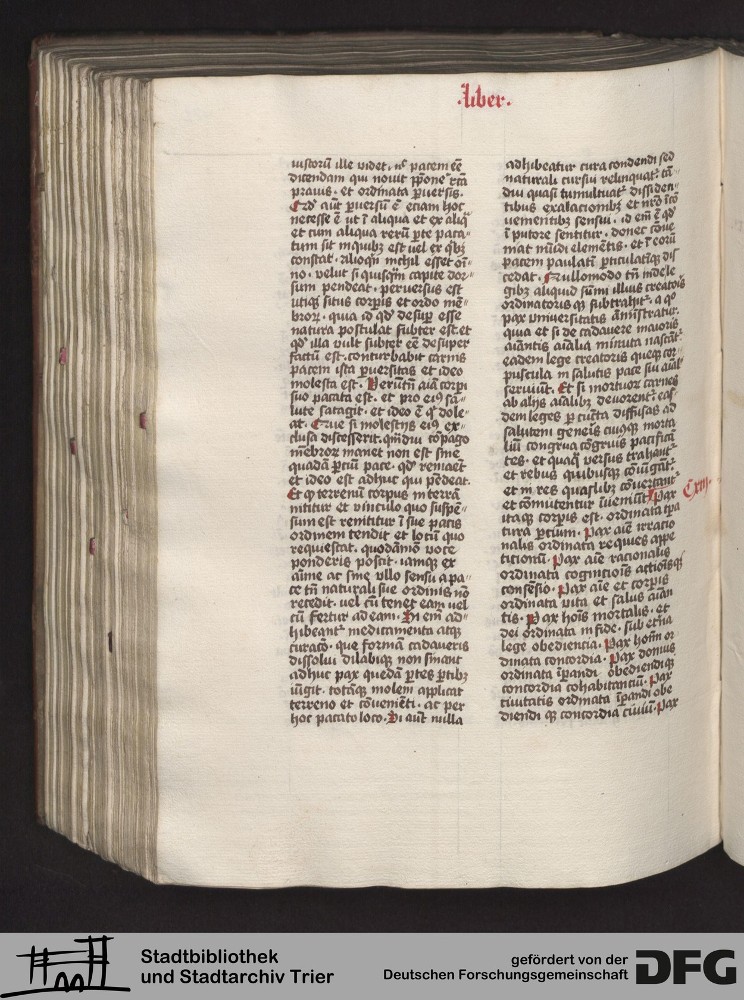 ·liber·
iustorū ille videt, nc̄ pacem eē
dicendam qui nouit p̄pone rc̄a
prauis · et ordinata ꝑuersis ·
Qd' aūt ꝑuersū ē eciam hoc
necesse ē ut ī aliqua et ex aliq̄
et cum aliqua rerū ꝑte paca-
tum sit in quibꝫ est vel ex qͥbꝫ
constat · alioqͥn nichil esset oī-
no · velut si quisqᷓm capite dor-
sum pendeat · perversus est
utiqꝫ situs corpīs et ordo mē-
broꝝ · quia id qd' desuꝑ esse
natura postulat subter est et
qd' illa vult subter eē desuper
factū est · conturbabit carnis
pacem ista ꝑuersitas et ideo
molesta est · Verūtn̄ aīa corpi
suo pacata est · et pro eiꝰ sa-
lute satagit · et ideo ē qͥ dole-
at · Que si molestijs eiꝰ ex-
clusa discesserit · qᷓmdiu cōpago
mēbroꝝ manet non est sine
quadā ꝑciū pace · qd' remaēt
et ideo est adhuc qui pēdeat ·
Et qͥ terrenū corpus in terrā
nititur et vinculo quo suspē-
sum est renititur ī sue pacis
ordinem tendit et locū quo
requiescat · quodāmō voce
ponderis poscit · iamqꝫ ex
aīme ac sine vllo sensu a pa-
ce tn̄ naturali sue ordinis nō
recedit · vel cū tenet eam vel
cū fertur ad eam · Si em̄ ad-
hibeantᷣ medicamenta atqꝫ
curacō · que formā cadaueris
dissolui dilabiqꝫ non sinant
adhuc pax quedā ꝑtes ꝑtibꝫ
iūgit · totāqꝫ molem applicat
terreno et cōueniēti · ac per
hoc pacato loco · Si aūt nulla
adhibeatur cura condendi sed
naturali cursui relinquatᷣ tā-
diu quasi tumultuatᷣ dissiden-
tibus exalacionibꝫ et nr̄o īcō
uementibꝫ sensui · id em̄ ē qd'
ī putore sentitur · donec cōue
niat mūdi elemētis · et ī eorū
pacem paulatī ꝑticulatīqꝫ dis
cedat · Nullomodo tn̄ inde le
gibꝫ aliquid sūmi illius creatoīs
ordinatorisqꝫ subtrahitᷣ · a qͦ
pax vniuersitatis amīstratur ·
quia et si de cadauere maioris
aīantis aīalia minuta nascātᷣ
eadem lege creatoris queqꝫ cor-
puscula in salutis pace sui aīāl'
seruiūt · Et si mortuoꝝ carnes
ab alijs aīalibꝫ deuorentᷣ eas
dem leges ꝑ cūcta diffusas ad
salutem geneīs cuiusqꝫ morta
liū congrua cōgruis pacificā
tes · et quaqᷓ versus trahantᷣ
et rebus quibusqꝫ cōiūgātᷣ
et in res quaslibꝫ cōuertantᷣ
et cōmutentur īueniūt Pax
Cxiij·
itaqꝫ corpis est · ordinata tꝑa
tura ꝑcium · Pax aīe irracio
nalis ordinata requies appe
ticionū · Pax aīe racionalis
ordinata cognicioīs actioīsqꝫ
consēsio · Pax aīe et corpīs
ordinata vita et salus aīan
tis · Pax hoīs mortalis · et
dei ordinata in fide · sub etn̄a
lege obediencia · Pax hoīm or
dinata concordia · Pax domus
ordinata īꝑandi obediendiqꝫ
concordia cohabitanciū · Pax
ciuitatis ordinata īꝑandi obe
diendi qꝫ concordia ciuiū · Pax
Stadtbibliothek
und Stadtarchiv Trier
gefördert von der
Deutschen Forschungsgemeinschaft
DFG